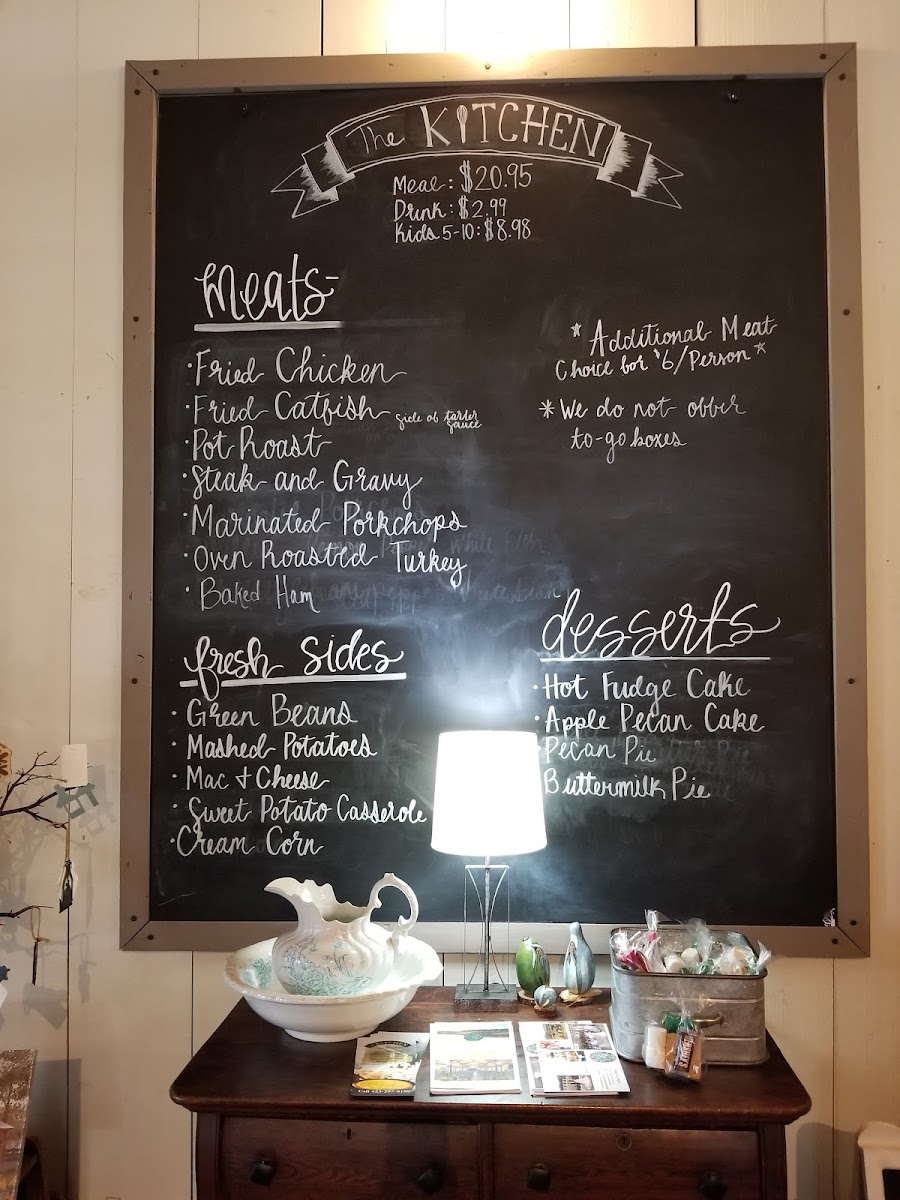 The KITCHEN
Meal: $20.95
Drink: $2.99
Kids 5-10: $8.98
Meats-
• Fried Chicken
• Fried Catfish side of tarter sauce
• Pot Roast
• Steak and Gravy
• Marinated Porkchops
• Oven Roasted Turkey
• Baked Ham
* Additional Meat
Choice for $6/Person *
* We do not offer
to-go boxes
fresh sides
• Green Beans
• Mashed Potatoes
• Mac & Cheese
• Sweet Potato Casserole
• Cream Corn
desserts
• Hot Fudge Cake
• Apple Pecan Cake
• Pecan Pie
Buttermilk Pie